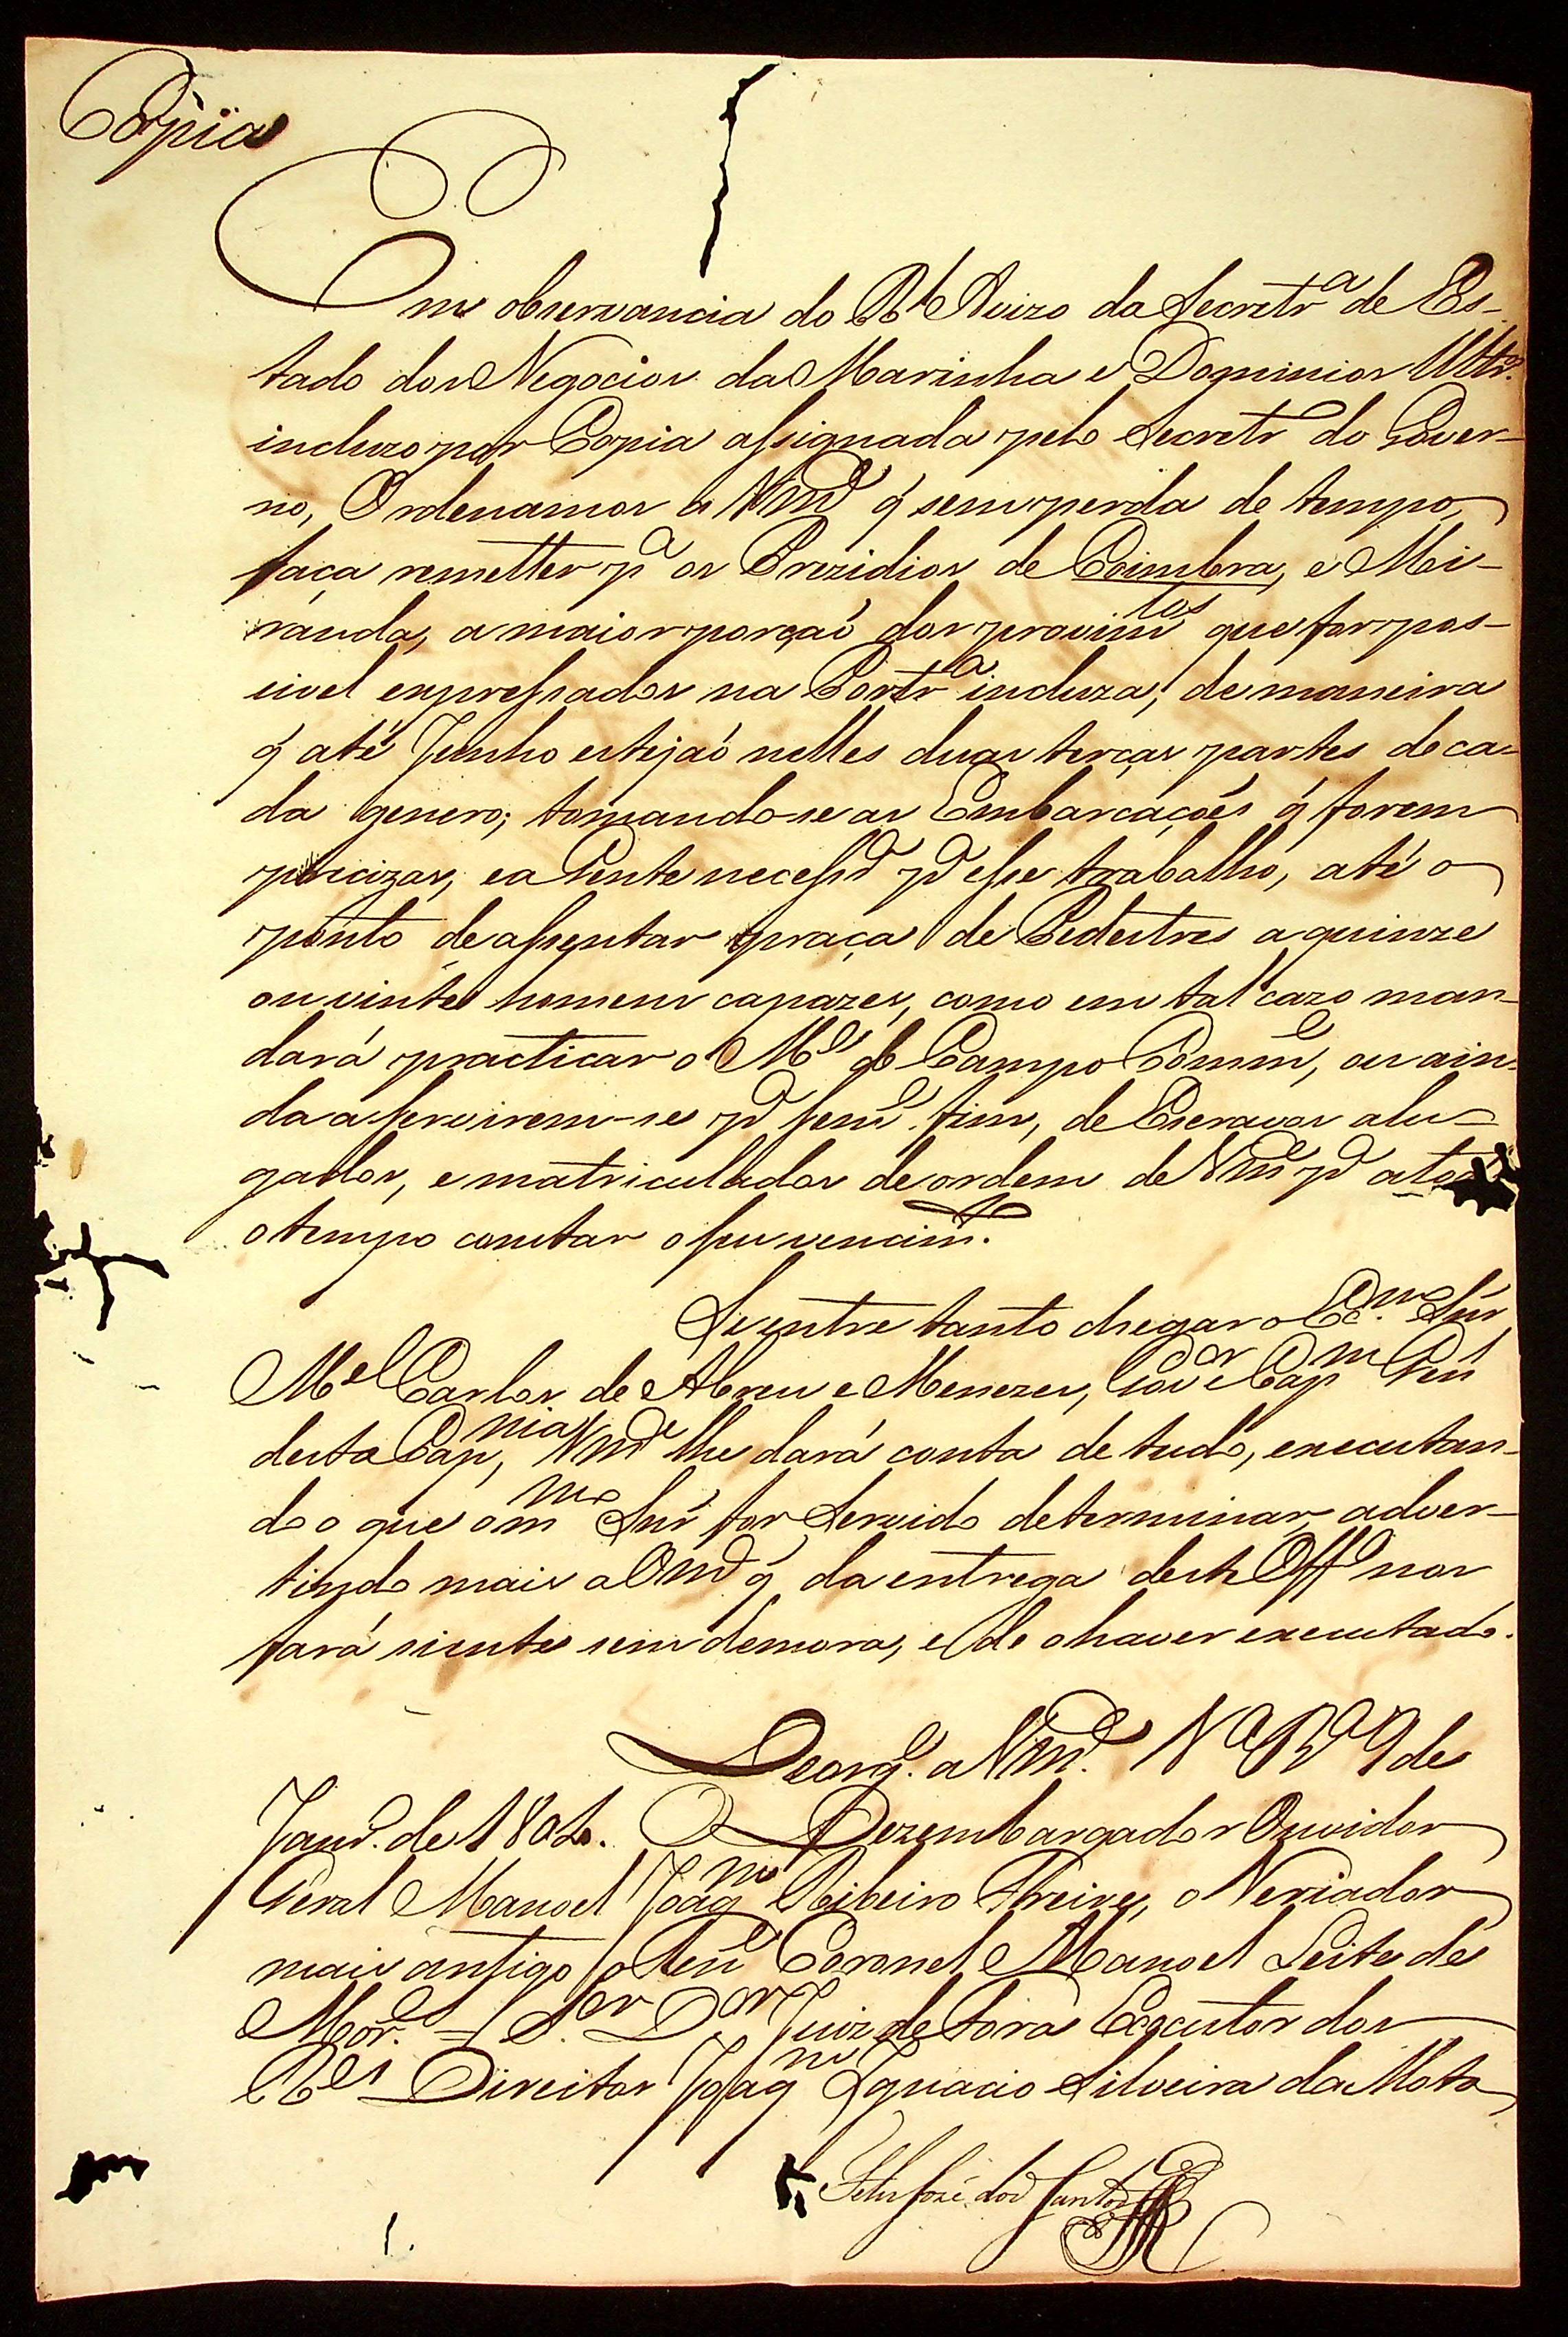 Copia
Em observancia do Rl Avizo da Secretrª de Es-
tado dos Negocios da Marinha e Dominios Ultr.
incluzo por Copia assignada pelo Secretrº do Gover-
no, Ordenamos a Vmce q' sem perda de tempo
faça remetter pª os Prezidios de Coimbra, e Mi-
randa, a maior porçaõ dos provimtos que for pos-
sivel expressados na Portrª incluza, de maneira
q' até Junho estejaõ nelles duas terças partes de ca-
da genero; tomando-se as Embarcações q' forem
precizas, e a Gente necessª pª esse trabalho, até o
ponto de assentar praça de Pedestres a quinze
ou vinte homens capazes, como em tal cazo man-
dará practicar o Me de Campo Comme, ou ain-
da a servirem-se pª seme fim, de Escravos alu-
gados, e matriculados de ordem de Vmce pª a todo
o tempo constar o seu vencimto.
Se entre tanto chegar o Exmo Snr
Mel Carlos de Abreu e Menezes, Govdor e Capm Genl
desta Capnia, Vmce lhe dará conta de tudo, executan-
do o que o mmo Snr for Servido determinar, adver-
tindo mais a Vmce q' da entrega deste Offº nos
fará siente sem demora, e de o haver executado.
Deos gde a Vmce. Vª Bª 9 de
Janrº. de 1804. O Dezembargador Ouvidor
Geral Manoel Joaqm Ribeiro Freire, o Veriador
mais antigo o Tene Coronel Manoel Leite de
Mores. = Sor. Dor Juiz de Fora Executor dos
Res Direitos Joaqm Ignacio Silveira da Mota
José dos Santos